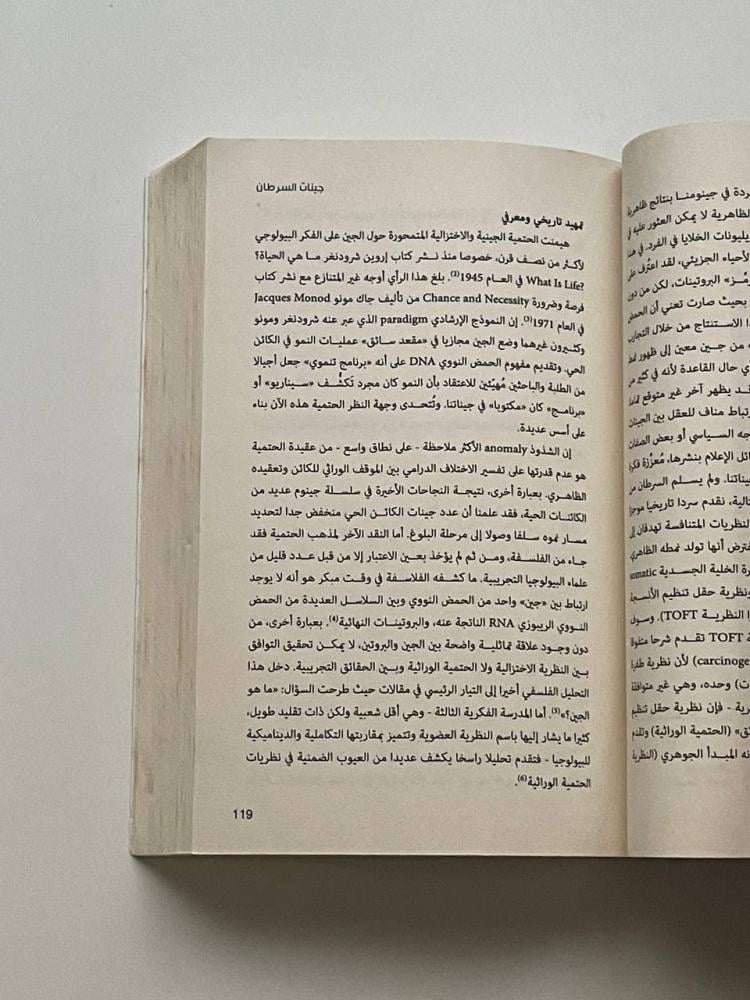 جينات السرطان
تمهيد تاريخي ومعرفي
هيمنت الحتمية الجينية والاختزالية المتمحورة حول الجين على الفكر البيولوجي
لأكثر من نصف قرن، خصوصا منذ نشر كتاب إروين شرودنغر ما هي الحياة؟
What Is Life? في العام 1945(2). بلغ هذا الرأي أوجه غير المتنازع مع نشر كتاب
فرصة وضرورة Chance and Necessity من تأليف جاك مونو Jacques Monod
في العام 1971(3). إن النموذج الإرشادي paradigm الذي عبر عنه شرودنغر ومونو
وكثيرون غيرهما وضع الجين مجازيا في «مقعد سائق» عمليات النمو في الكائن
الحي. وتقديم مفهوم الحمض النووي DNA على أنه «برنامج تنموي» جعل أجيالا
من الطلبة والباحثين مُهيّئين للاعتقاد بأن النمو كان مجرد تَكشُّف «سيناريو» أو
«برنامج» كان «مكتوبا» في جيناتنا. وتُتحدى وجهة النظر الحتمية هذه الآن بناء
على أسس عديدة.
إن الشذوذ anomaly الأكثر ملاحظة - على نطاق واسع - من عقيدة الحتمية
هو عدم قدرتها على تفسير الاختلاف الدرامي بين الموقف الوراثي للكائن وتعقيده
الظاهري. بعبارة أخرى، نتيجة النجاحات الأخيرة في سلسلة جينوم عديد من
الكائنات الحية، فقد علمنا أن عدد جينات الكائن الحي منخفض جدا لتحديد
مسار نموه سلفا وصولا إلى مرحلة البلوغ. أما النقد الآخر لمذهب الحتمية فقد
جاء من الفلسفة، ومن ثم لم يؤخذ بعين الاعتبار إلا من قبل عدد قليل من
علماء البيولوجيا التجريبية. ما كشفه الفلاسفة في وقت مبكر هو أنه لا يوجد
ارتباط بين «جين» واحد من الحمض النووي وبين السلاسل العديدة من الحمض
النووي الريبوزي RNA الناتجة عنه، والبروتينات النهائية(4). بعبارة أخرى، من
دون وجود علاقة تماثلية واضحة بين الجين والبروتين، لا يمكن تحقيق التوافق
بين النظرية الاختزالية ولا الحتمية الوراثية وبين الحقائق التجريبية. دخل هذا
التحليل الفلسفي أخيرا إلى التيار الرئيسي في مقالات حيث طرحت السؤال: «ما هو
الجين؟»(5). أما المدرسة الفكرية الثالثة - وهي أقل شعبية ولكن ذات تقليد طويل،
كثيرا ما يشار إليها باسم النظرية العضوية وتتميز بمقاربتها التكاملية والديناميكية
للبيولوجيا - فتقدم تحليلا راسخا يكشف عديدا من العيوب الضمنية في نظريات
الحتمية الوراثية(6).
119
ردة في جينومنا بنتائج ظاهرية
الظاهرية لا يمكن العثور عليه في
بليونات الخلايا في الفرد. في هذا
الأحياء الجزيئي، لقد اعتُرف على
«رمّز» البروتينات، لكن من دون
بحيث صارت تعني أن الحمض
ا الاستنتاج من خلال التجارب
» من جين معين إلى ظهور نمط
ي حال القاعدة لأنه في كثير من
قد يظهر آخر غير متوقع تماما.
رتباط مناف للعقل بين الجينات
جه السياسي أو بعض الصفات
ائل الإعلام بنشرها، مُعزِّزة فكرة
جيناتنا. ولم يسلم السرطان من
تالية، نقدم سردا تاريخيا موجزا
النظريات المتنافسة تهدفان إلى
فترض أنها تولد نمطه الظاهري
رة الخلية الجسدية somatic
ونظرية حقل تنظيم الأنسجة
ا النظرية TOFT). وسوف
ة TOFT تقدم شرحا متفوقا
(carcinoge لأن نظرية طفرة
ت) وحده، وهي غير متوافقة
رية - فإن نظرية حقل تنظيم
ئق» (الحتمية الوراثية) وتقدم
نه المبدأ الجوهري (النظرية